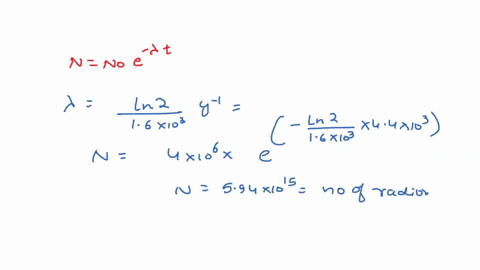 N = No e^{-λt}
λ = \frac{ln 2}{1.6×10^3} y^{-1} =
N = 4×10^6 × e^{(-\frac{ln 2}{1.6×10^3} ×4.4×10^3)}
N = 5.94×10^{15} = no of radior